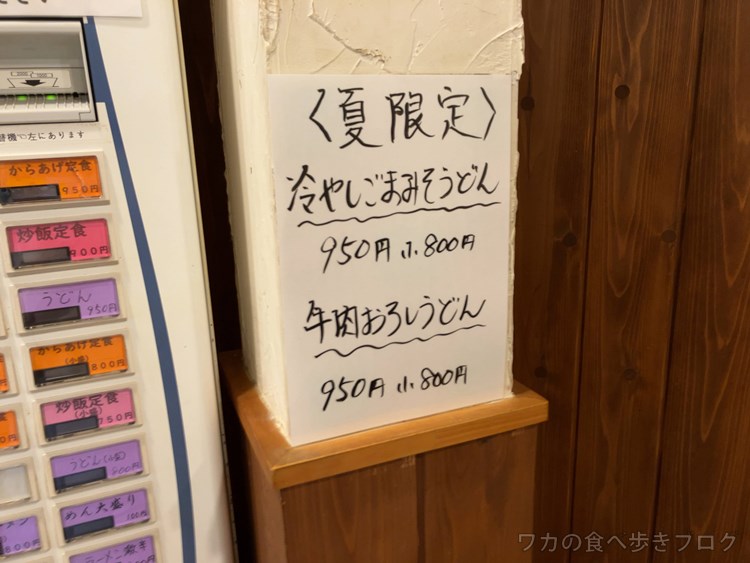 替機☜左にあります
からあげ定食
950円
炒飯定食
900円
うどん
950円
からあげ定食
(小盛)
800円
炒飯定食
(小盛)
750円
うどん(小)
800円
めん大盛り
100円
800円
〈夏限定〉
冷やしごまみそうどん
950円 小800円
牛肉おろしうどん
950円 小800円
ワカの食べ歩きブログ